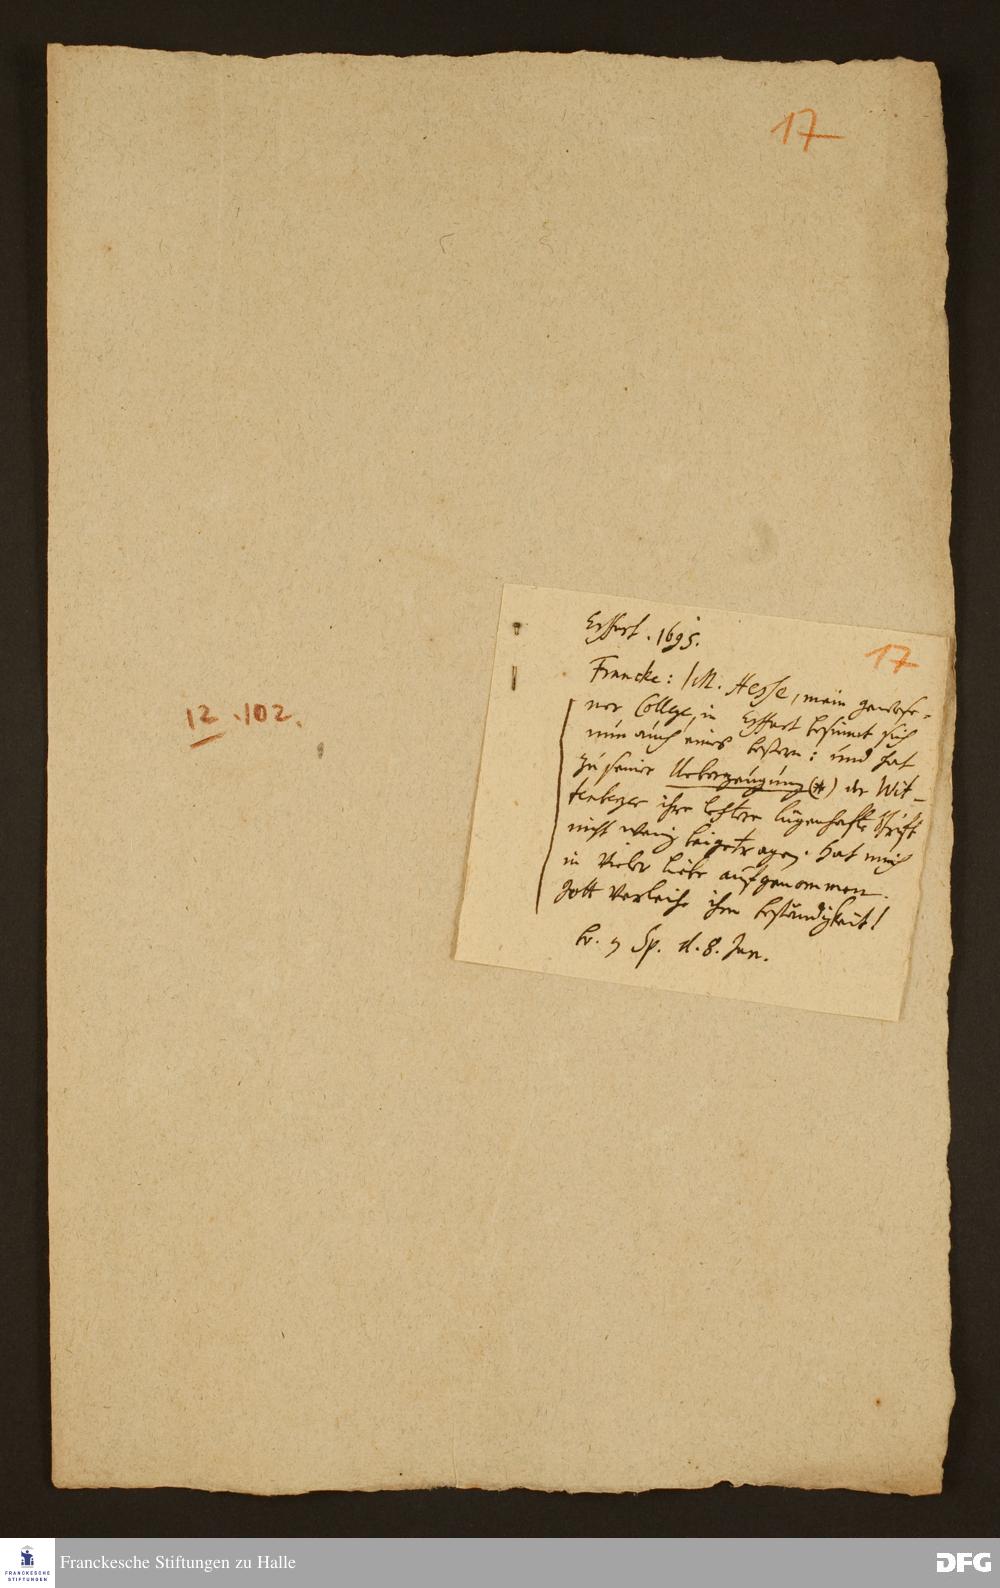 17
12.102.
Erffurt. 1695.
17
Francke: M. Hesse, mein gewese-
ner College, in Erffurt besinnet sich
nun auch eines bessern: und hat
zu seiner Ueberzeugung (*) der Wit-
tenberger ihre letztere lügenhafte Schrift
nicht wenig beigetragen. Hat mich
in vieler liebe aufgenommen.
Gott verleihe ihm beständigkeit!
br. Sp. d. 8. Jan.
Franckesche Stiftungen zu Halle
FRANCKESCHE
STIFTUNGEN
DFG